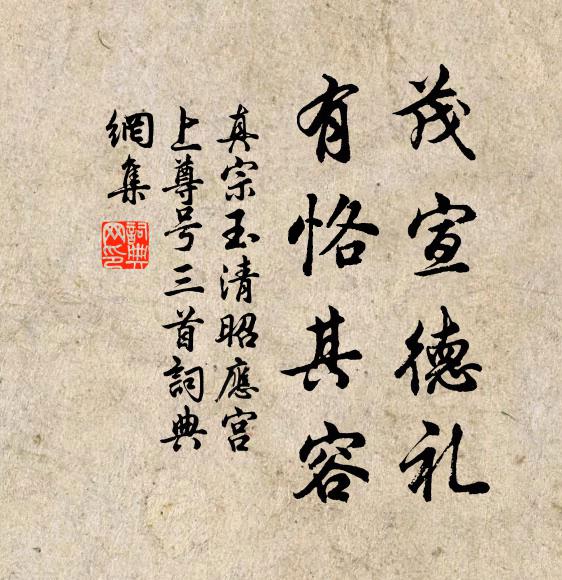 茂宣德礼
有恪其容
真宗玉清昭应宫
上尊号三首詞典
網集
詞典
网印